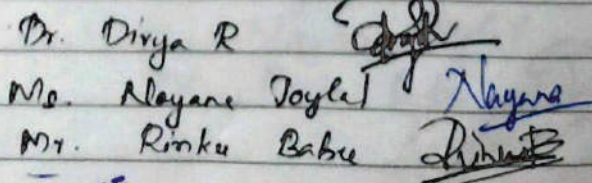 Dr. Divya R
Ms. Nayana Joylal Nayana
Mr. Rinku Babu